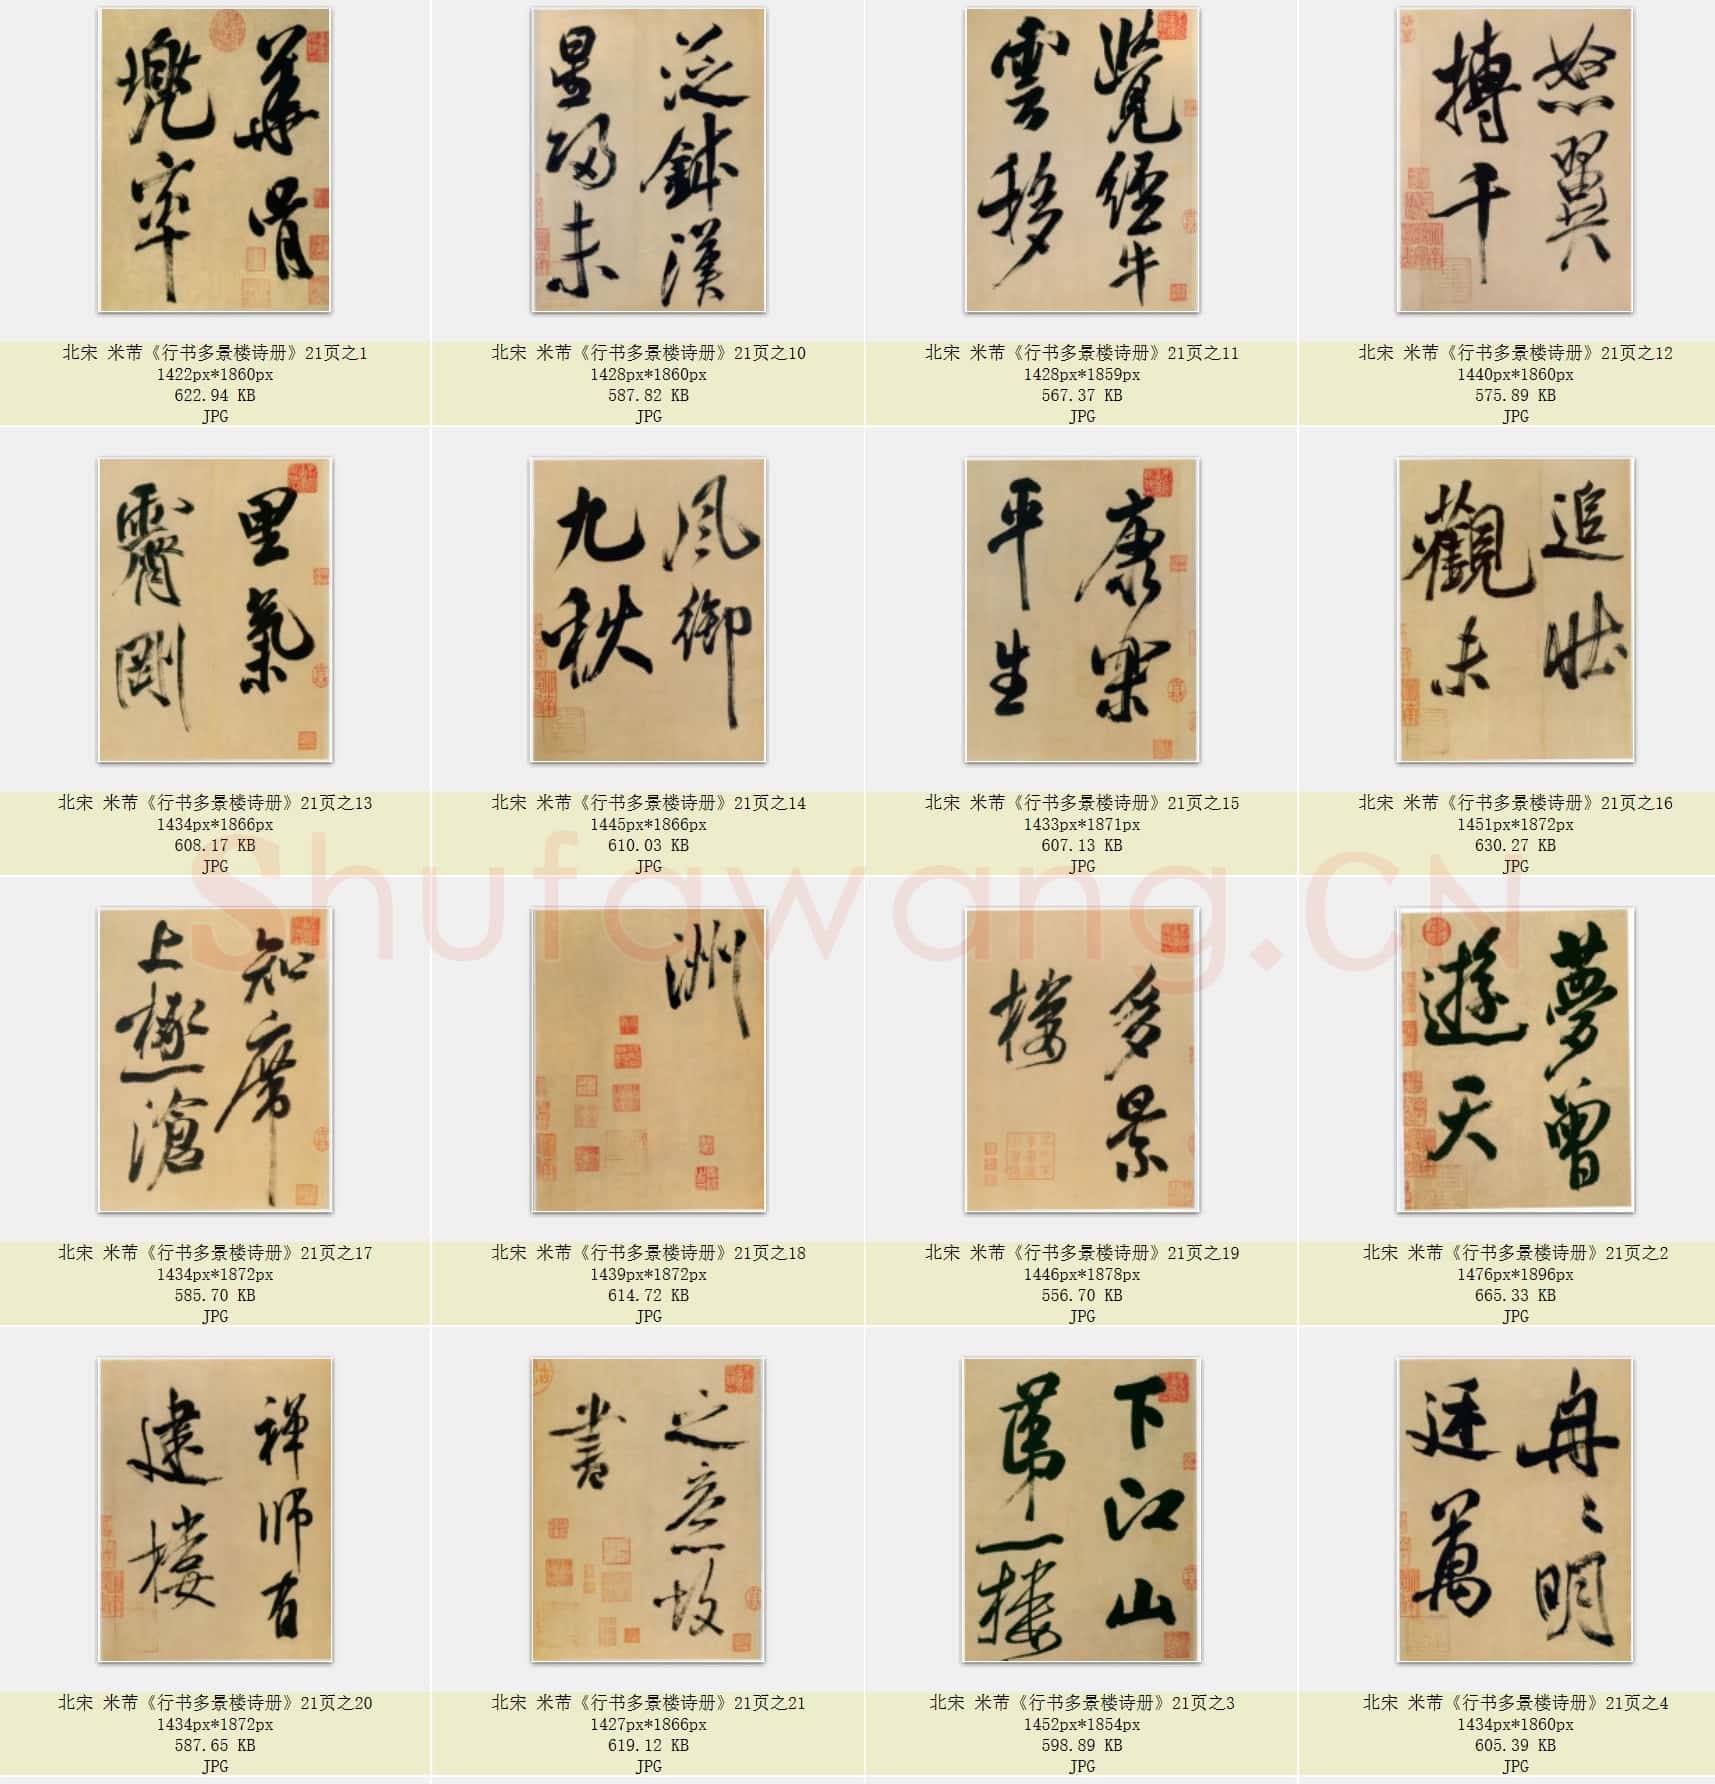 華胥
兜率
北宋 米芾《行书多景楼诗册》21页之1
1422px*1860px
622.94 KB
JPG
泛鉢漢
星歸未
北宋 米芾《行书多景楼诗册》21页之10
1428px*1860px
587.82 KB
JPG
覺經牛
雲移
北宋 米芾《行书多景楼诗册》21页之11
1428px*1859px
567.37 KB
JPG
怒翼
搏千
北宋 米芾《行书多景楼诗册》21页之12
1440px*1860px
575.89 KB
JPG
里氣
霽剛
北宋 米芾《行书多景楼诗册》21页之13
1434px*1866px
608.17 KB
JPG
風御
九秋
北宋 米芾《行书多景楼诗册》21页之14
1445px*1866px
610.03 KB
JPG
康樂
平生
北宋 米芾《行书多景楼诗册》21页之15
1433px*1871px
607.13 KB
JPG
追壯
觀未
北宋 米芾《行书多景楼诗册》21页之16
1451px*1872px
630.27 KB
JPG
Shufawang.CN
知席
上極滄
北宋 米芾《行书多景楼诗册》21页之17
1434px*1872px
585.70 KB
JPG
洲
北宋 米芾《行书多景楼诗册》21页之18
1439px*1872px
614.72 KB
JPG
多景
樓
北宋 米芾《行书多景楼诗册》21页之19
1446px*1878px
556.70 KB
JPG
夢曾
遊天
北宋 米芾《行书多景楼诗册》21页之2
1476px*1896px
665.33 KB
JPG
禪師有
建樓
北宋 米芾《行书多景楼诗册》21页之20
1434px*1872px
587.65 KB
JPG
之意故
書
北宋 米芾《行书多景楼诗册》21页之21
1427px*1866px
619.12 KB
JPG
下江山
第一樓
北宋 米芾《行书多景楼诗册》21页之3
1452px*1854px
598.89 KB
JPG
冉〻明
廷萬
北宋 米芾《行书多景楼诗册》21页之4
1434px*1860px
605.39 KB
JPG